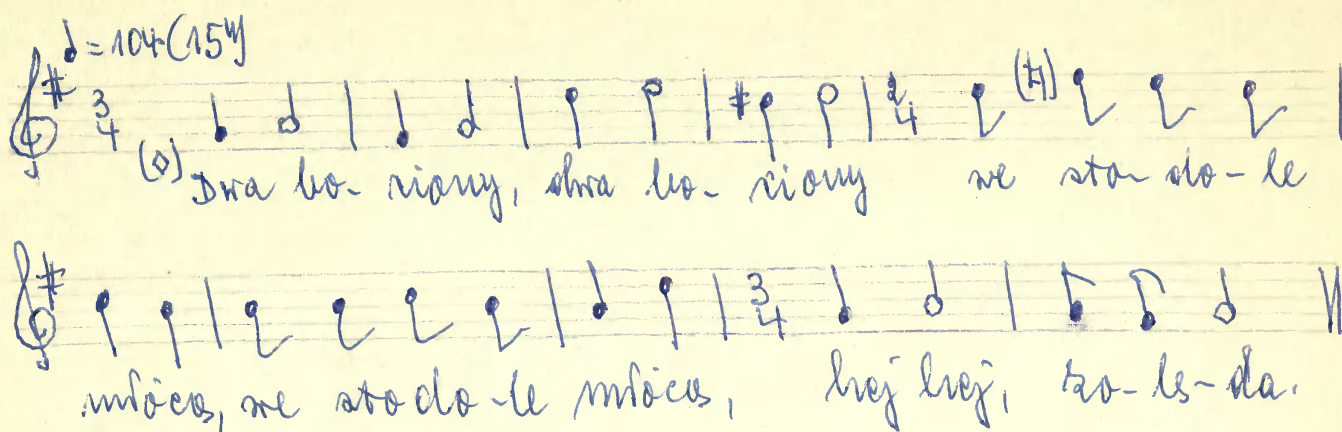 ♩= 104 (15")
3/4 2/4
Dwa bo- ciony, dwa bo- ciony we sto- do- le
3/4
młócą, we stodo-le młócą, hej hej, ko-lę-da.